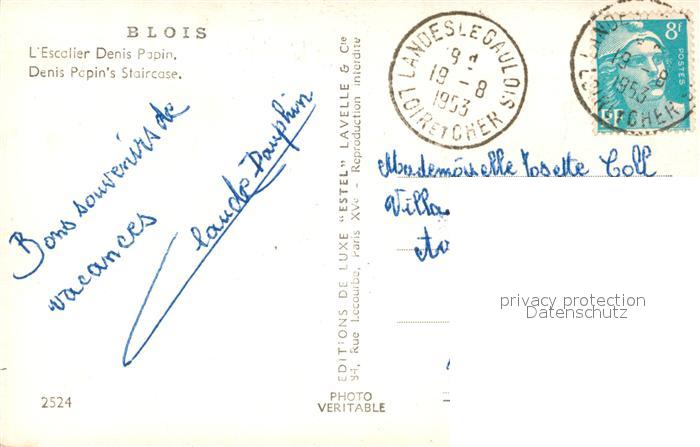 BLOIS
L'Escalier Denis Papin.
Denis Papin's Staircase.
Bons souvenirs de
vacances
Claude Dauphin
2524
EDITIONS DE LUXE "ESTEL" LAVELLE & Cie
94, Rue Lecourbe, Paris XVe - Reproduction interdite
PHOTO
VERITABLE
LANDES LE GAULOIS
19 - 8
1953
LOIR ET CHER
8f
POSTES
RF
19 - 8
1953
Mademoiselle Josette Coll
Villa
privacy protection
Datenschutz